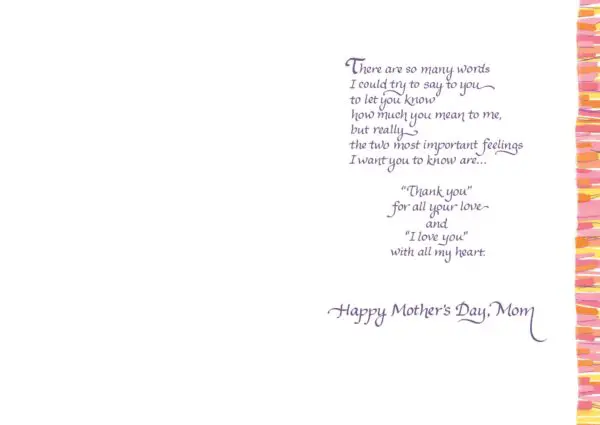 There are so many words
I could try to say to you
to let you know
how much you mean to me,
but really
the two most important feelings
I want you to know are...
"Thank you"
for all your love
and
"I love you"
with all my heart.
Happy Mother's Day, Mom